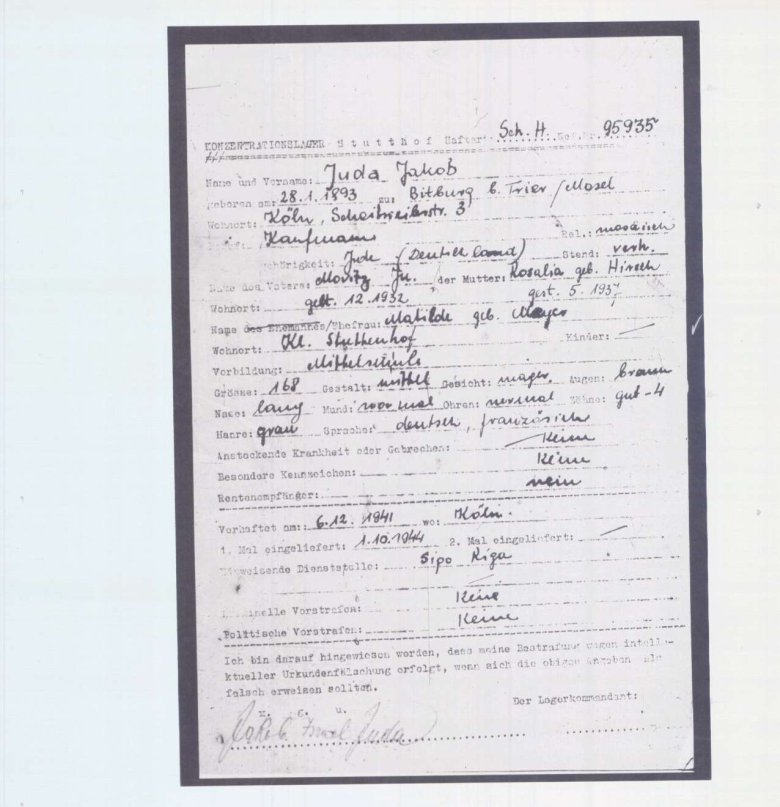 KONZENTRATIONSLAGER Stutthof Haftart: Sch. H. Gef.Nr. 95935
Name und Vorname: Juda Jakob
Geboren am: 28.1.1893 zu: Bitburg b. Trier / Mosel
Wohnort: Köln, 3
Kaufmann Rel.: mosaisch
Jude (Deutschland) Stand: verh.
Name des Vaters: Moritz Ju. der Mutter: Rosalia geb. Hirsch
Wohnort: gest. 12.1932 gest. 5.1937
Name des Ehemannes/Ehefrau: Matilde geb. Meyer
Wohnort: Kl. Stuttenhof Kinder: —
Vorbildung: Mittelschule
Grösse: 168 Gestalt: mittel Gesicht: mager. Augen: braun
Nase: lang Mund: normal Ohren: normal Zähne: gut -4
Haare: grau Sprache: deutsch, französisch
Ansteckende Krankheit oder Gebrechen: Keine
Besondere Kennzeichen: Keine
Rentenempfänger: nein
Verhaftet am: 6.12.1941 wo: Köln.
1. Mal eingeliefert: 1.10.1944 2. Mal eingeliefert: —
Einweisende Dienststelle: Sipo Riga
Kriminelle Vorstrafen: Keine
Politische Vorstrafen: Keine
Ich bin darauf hingewiesen worden, dass meine Bestrafung wegen intelle-
ktueller Urkundenfälschung erfolgt, wenn sich die obigen Angaben als
falsch erweisen sollten.
v. g. u. Der Lagerkommandant:
Jakob Israel Juda